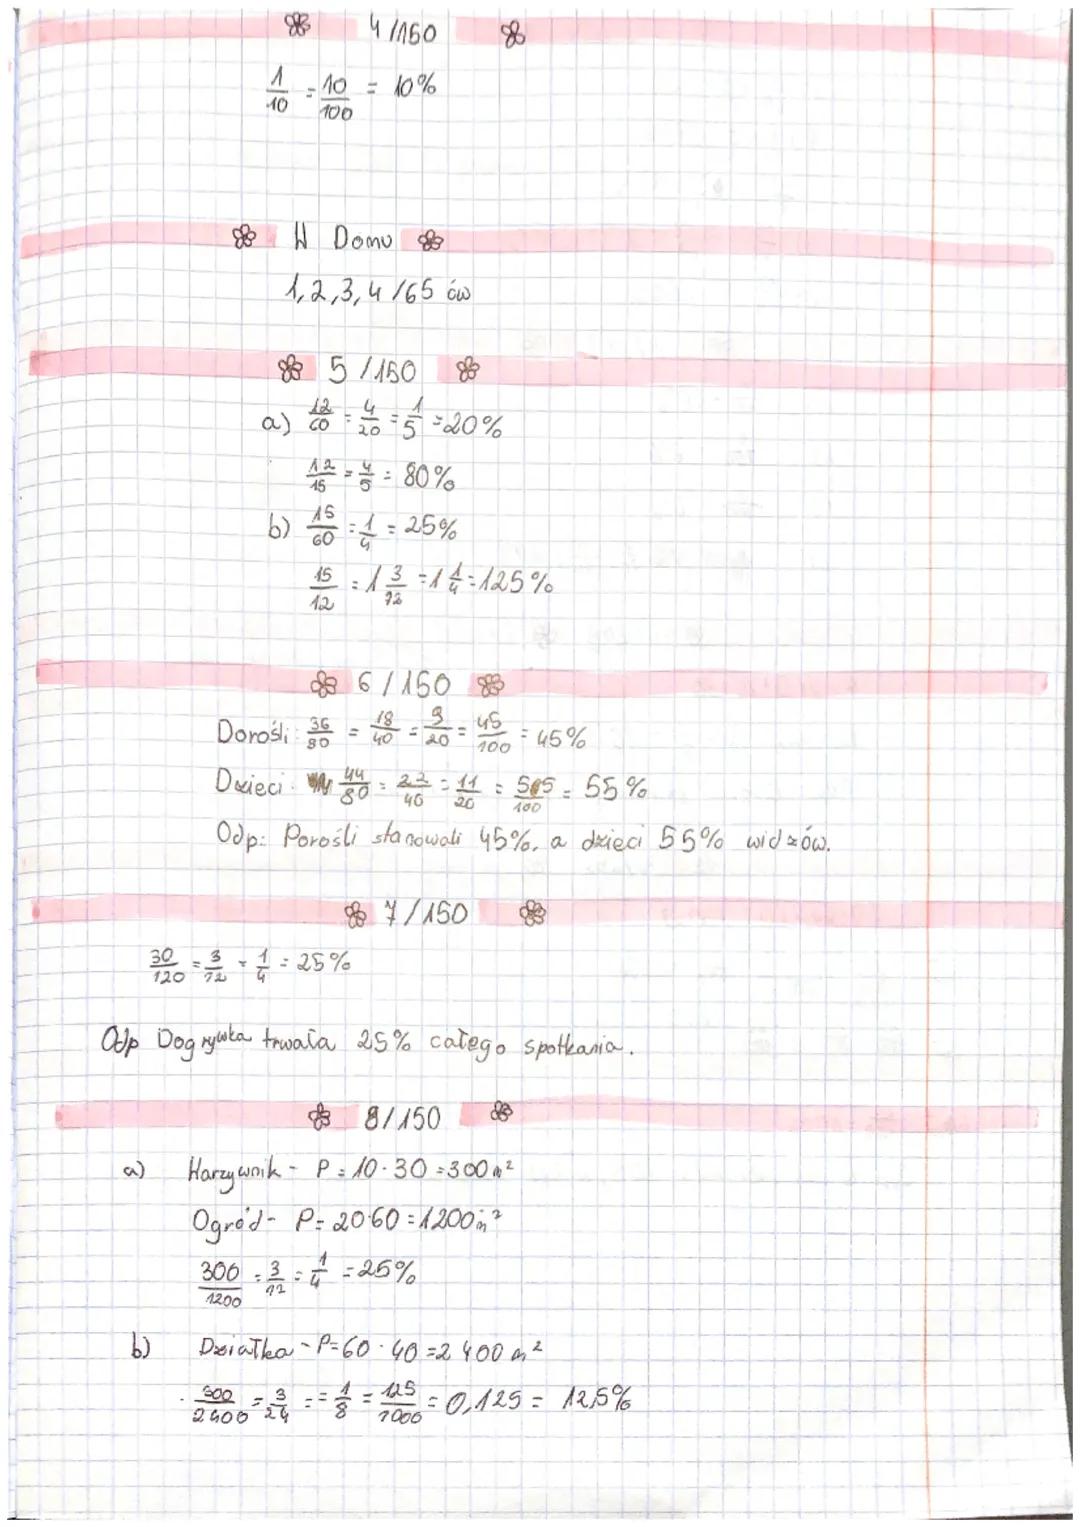 4/150
1/10 = 10/100 = 10%
W Domu
1, 2, 3, 4 /65 ćw
5 /150
a) 12/60 = 4/20 = 1/5 = 20%
12/15 = 4/5 = 80%
b) 15/60 = 1/4 = 25%
15/12 = 1 3/12 = 1 1/4 = 125%
6/150
Dorośli: 36/80 = 18/40 = 9/20 = 45/100 = 45%
Dzieci: 44/80 = 22/40 = 11/20 = 55/100 = 55%
Odp: Porośli stanowali 45%, a dzieci 55% widzów.
7/150
30/120 = 3/12 = 1/4 = 25%
Odp Dogrywka trwała 25% całego spotkania.
8/150
a) Warzywnik - P = 10 · 30 = 300 m²
Ogród - P = 20·60 = 1200 m²
300/1200 = 3/12 = 1/4 = 25%
b) Działka - P=60 · 40 = 2 400 m²
300/2400 = 3/24 = = 1/8 = 125/1000 = 0,125 = 12,5%